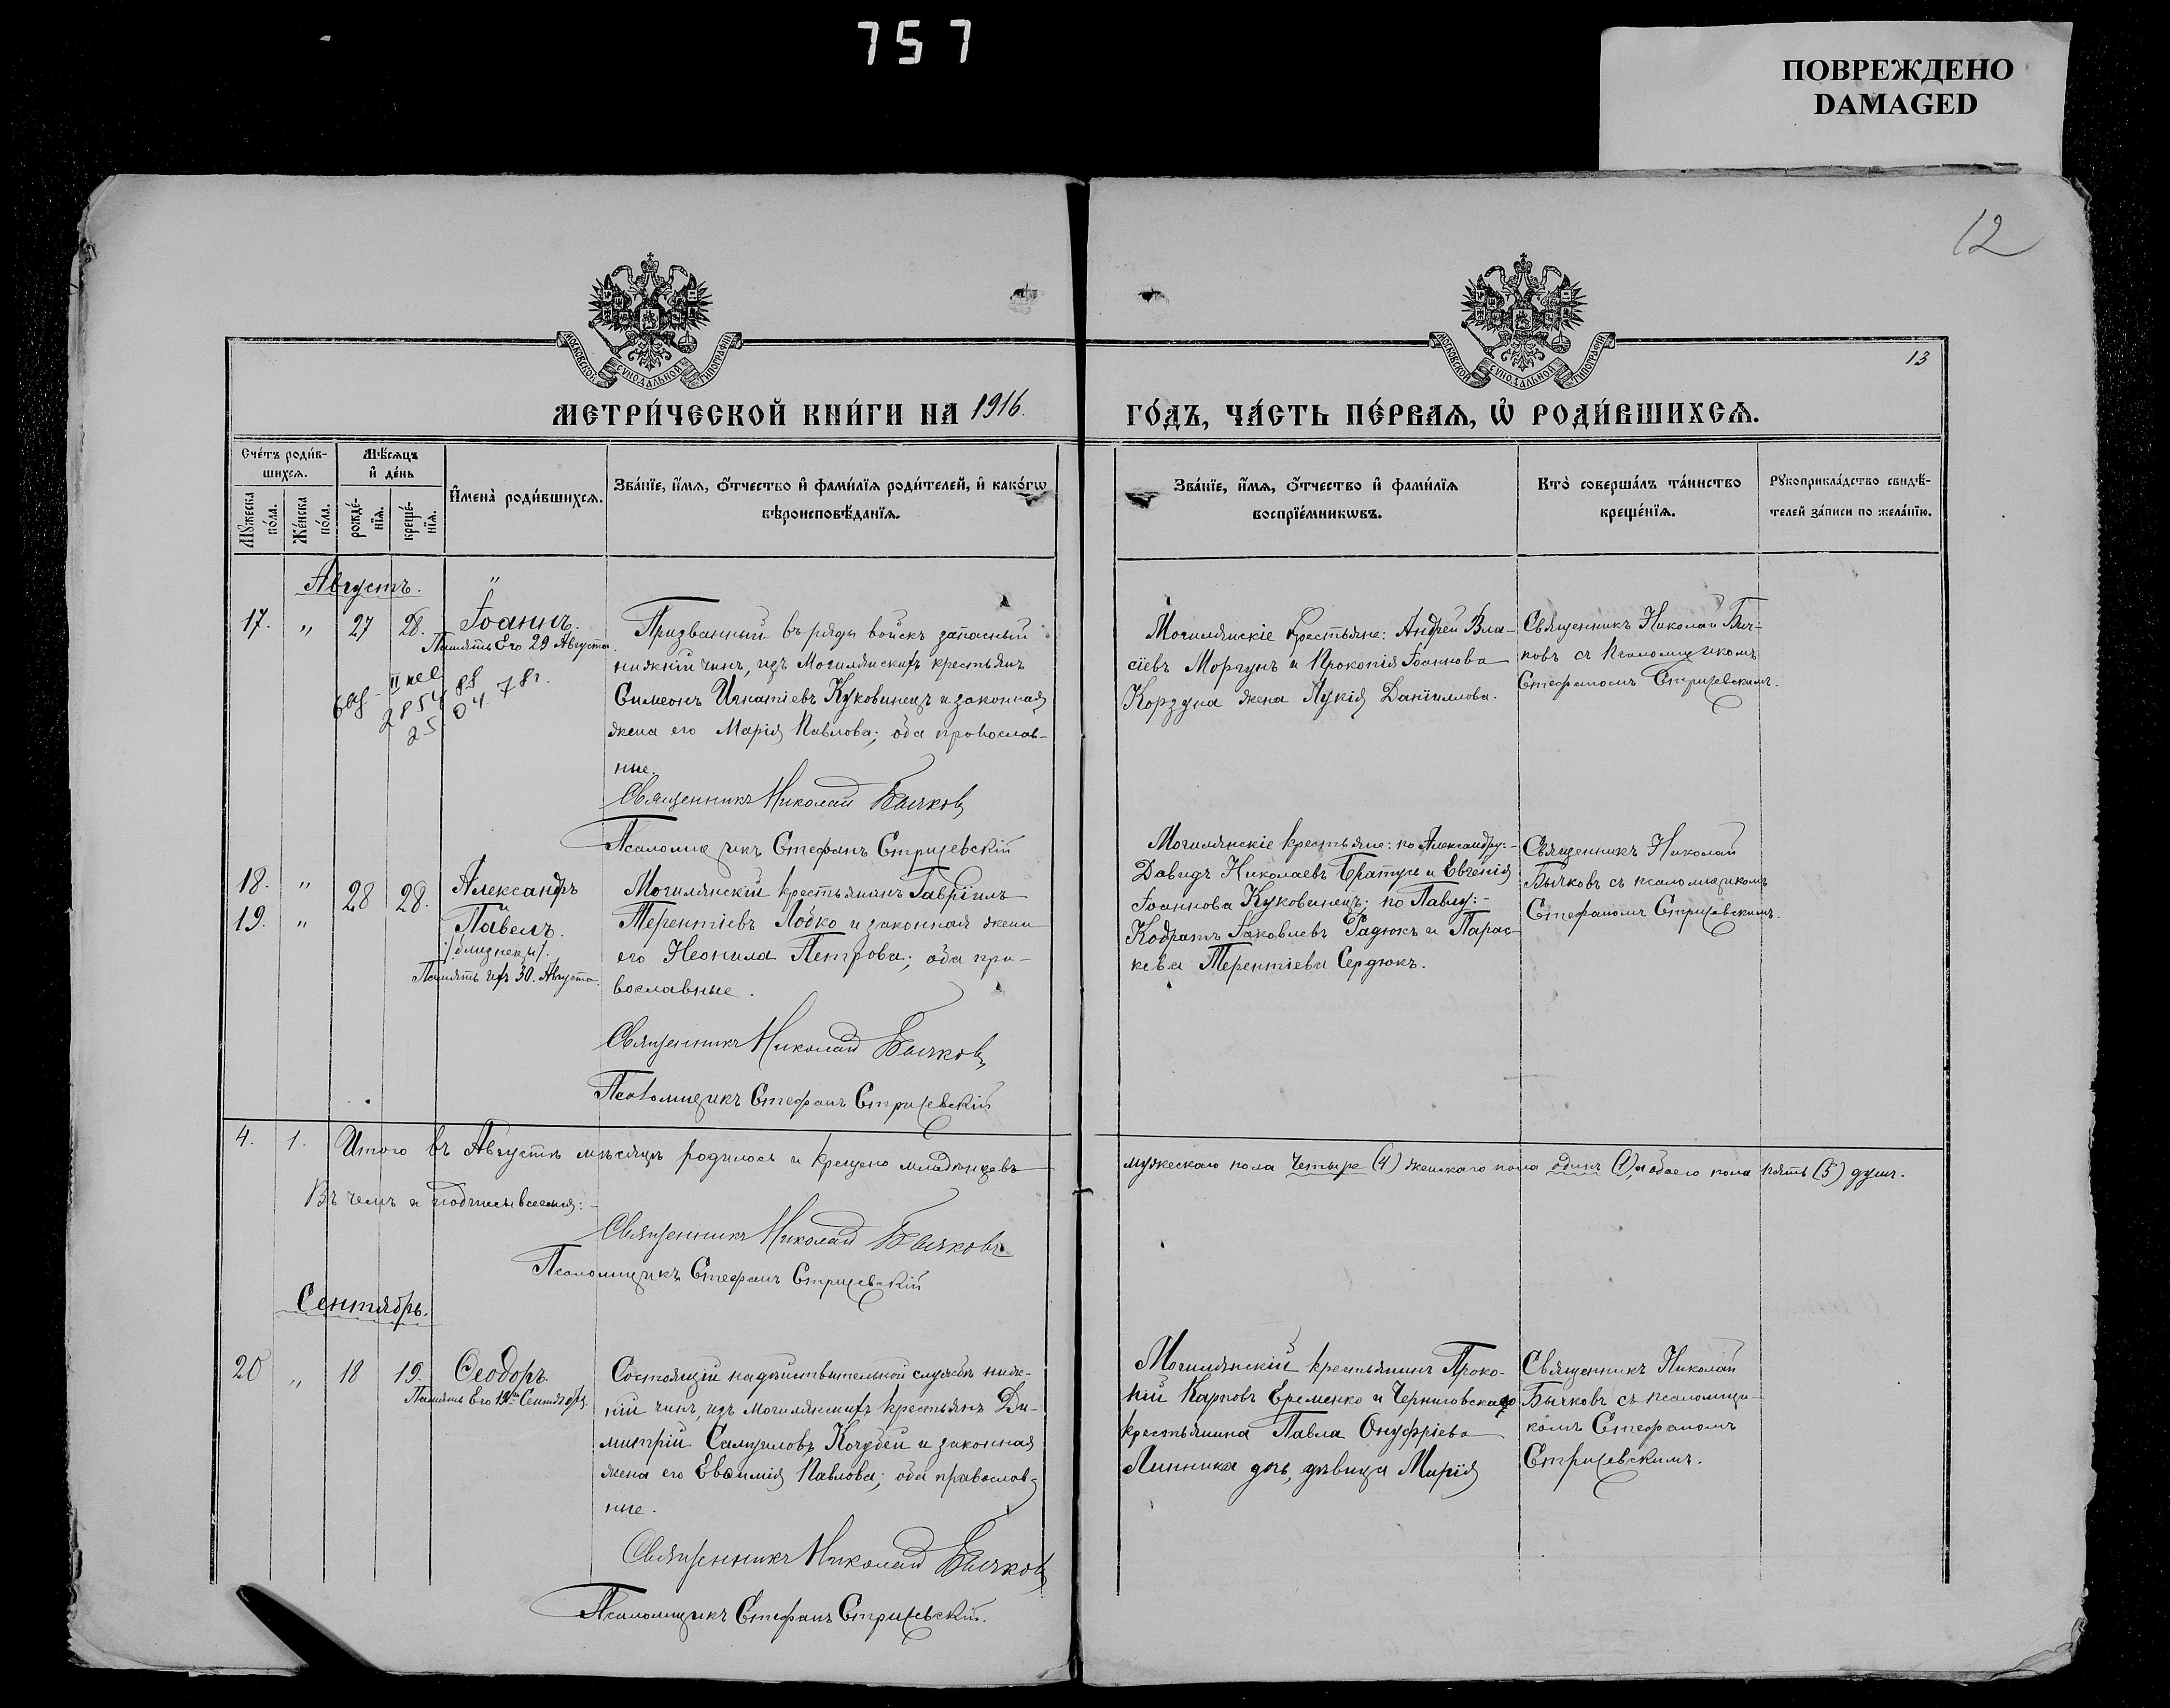 757
ПОВРЕЖДЕНО
DAMAGED
12
13
МОСКОВСКОЙ СѴНОДАЛЬНОЙ ТИПОГРАФІИ
МОСКОВСКОЙ СѴНОДАЛЬНОЙ ТИПОГРАФІИ
МЕТРИ́ЧЕСКОЙ КНИ́ГИ НА 1916.
ГО́ДЪ, ЧА́СТЬ ПЕ́РВАѦ, Ѡ҆ РОДИ́ВШИХСѦ.
Сче́тъ роди́в-
шихсѧ.
Мѣ́сѧцъ
и҆ де́нь
Мꙋ́жеска
по́ла.
Же́нска
по́ла.
рожде́-
нїѧ.
креще́-
нїѧ.
И҆мена̀ роди́вшихсѧ.
Зва́нїе, и҆́мѧ, ѻ҆́тчество и҆ фами́лїѧ роди́телей, и҆ како́гѡ
вѣроисповѣ́данїѧ.
Зва́нїе, и҆́мѧ, ѻ҆́тчество и҆ фами́лїѧ
воспрїе́мникѡвъ.
Кто̀ соверша́лъ та́инство
креще́нїѧ.
Рꙋкоприкла́дство свидѣ́-
телей за́писи по жела́нїю.
Августъ.
"
17. " 27 28. Іоаннъ.
Память Его 29 Августа.
Призванный въ ряды войскъ запасный
нижній чинъ, изъ Могилянскихъ крестьянъ
Симеонъ Игнатіевъ Куковинецъ и законная
жена его Марія Павлова; оба православ-
ные.
Священникъ Николай Бычковъ
Псаломщикъ Стефанъ Стришевскій
Могилянскіе крестьяне: Андрей Вла-
сіевъ Моргунъ и Прокопія Іоаннова
Корзуна жена Лукія Даніилова.
Священникъ Николай Быч-
ковъ съ псаломщикомъ
Стефаномъ Стришевскимъ.
18. " 28 28. Александръ
19. " Павелъ.
/близнецы/.
Память ихъ 30. Августа.
Могилянскій крестьянинъ Гавріилъ
Терентіевъ Лобко и законная жена
его Неонила Петрова; оба пра-
вославные.
Священникъ Николай Бычковъ
Псаломщикъ Стефанъ Стришевскій
Могилянскіе крестьяне: по Александру:-
Давидъ Николаевъ Братусь и Евгенія
Іоаннова Куковинецъ; по Павлу:-
Кодратъ Іаковлевъ Радюкъ и Парас-
кева Терентіева Сердюкъ.
Священникъ Николай
Бычковъ съ псаломщикомъ
Стефаномъ Стришевскимъ.
4. 1. Итого въ Августѣ мѣсяцѣ родилось и крещено младенцевъ
мужескаго пола четыре (4) женскаго пола одинъ (1), а обоего пола пять (5) душъ.
Въ чемъ и подписываемся:-
Священникъ Николай Бычковъ
Псаломщикъ Стефанъ Стришевскій
Сентябрь.
20 " 18 19. Ѳеодоръ.
Состоящій на дѣйствительной службѣ ниж-
ній чинъ, изъ Могилянскихъ крестьянъ Ди-
митрій Самуиловъ Кочубей и законная
жена его Евѳимія Павлова; оба православ-
ные.
Священникъ Николай Бычковъ
Псаломщикъ Стефанъ Стришевскій.
Могилянскій крестьянинъ Проко-
пій Карповъ Еременко и Черниговскаго
крестьянина Павла Онуфріева
Линника дочь, дѣвица Марія
Священникъ Николай
Бычковъ съ псаломщи-
комъ Стефаномъ
Стришевскимъ.